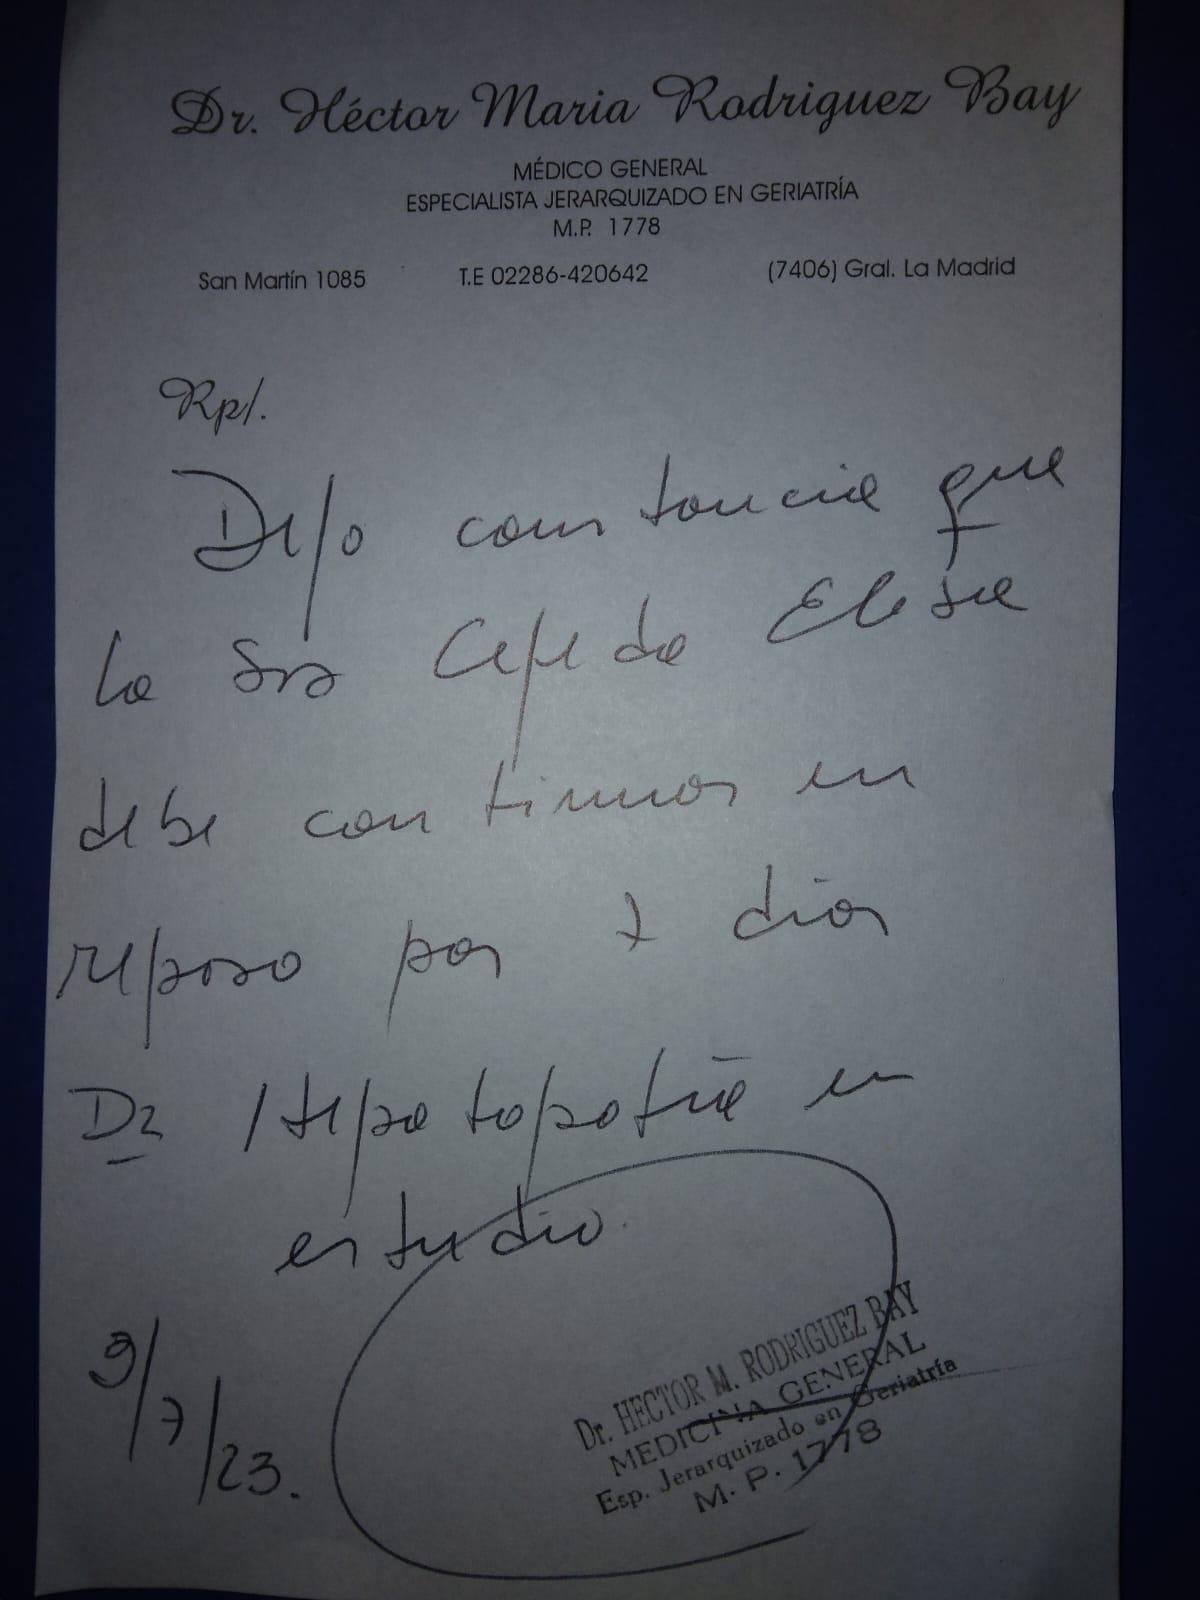 Dr. Héctor Maria Rodriguez Bay
MÉDICO GENERAL
ESPECIALISTA JERARQUIZADO EN GERIATRÍA
M.P. 1778
San Martín 1085 T.E 02286-420642 (7406) Gral. La Madrid
Rp/.
Dejo constancia que
la Sra Cepeda
debe continuar en
reposo por 7 días
Dz Hepatopatía en
estudio.
9/7/23.
Dr. HECTOR M. RODRIGUEZ BAY
MEDICINA GENERAL
Esp. Jerarquizado en Geriatría
M. P. 1778